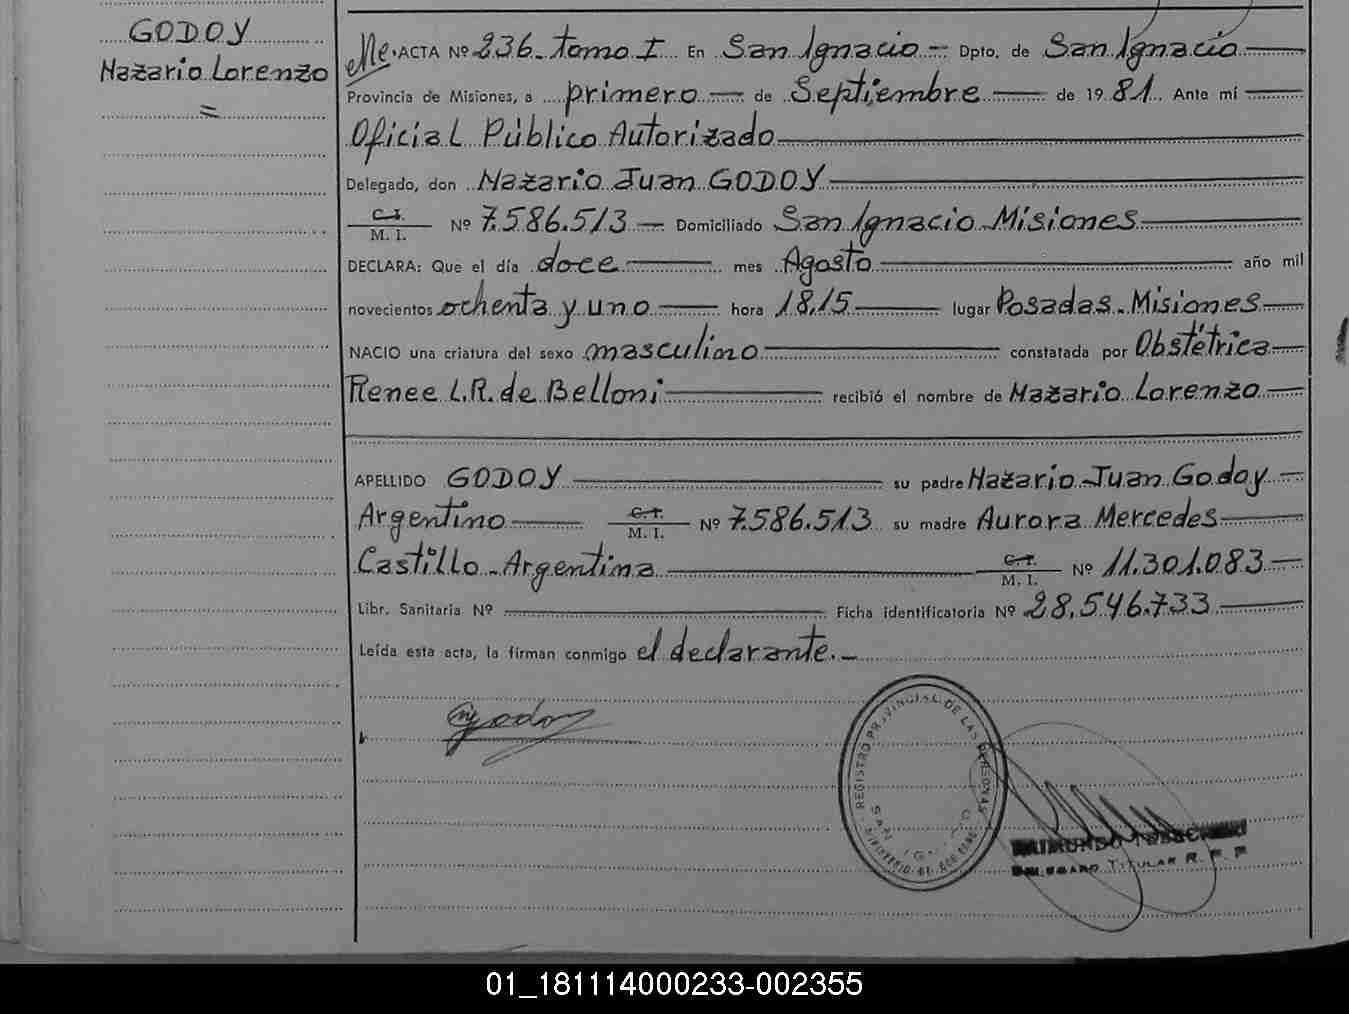 GODOY
Nazario Lorenzo
=
ACTA Nº 236- tomo I En San Ignacio - Dpto. de San Ignacio
Provincia de Misiones, a primero de Septiembre de 1981. Ante mí
Oficial Público Autorizado
Delegado, don Nazario Juan GODOY
C. I.
M. I. Nº 7.586.513 - Domiciliado San Ignacio Misiones
DECLARA: Que el día doce mes Agosto año mil
novecientos ochenta y uno hora 18,15 lugar Posadas-Misiones
NACIO una criatura del sexo masculino constatada por Obstétrica
Renee L.R. de Belloni recibió el nombre de Nazario Lorenzo
APELLIDO GODOY su padre Nazario Juan Godoy
Argentino C. I. M. I. Nº 7.586.513 su madre Aurora Mercedes
Castillo-Argentina C. I. M. I. Nº 11.301.083
Libr. Sanitaria Nº Ficha identificatoria Nº 28.546.733
Leída esta acta, la firman conmigo el declarante.-
REGISTRO PROVINCIAL DE LAS PERSONAS
SAN IGNACIO
RAIMUNDO
DELEGADO TITULAR R. P. P.
01_181114000233-002355